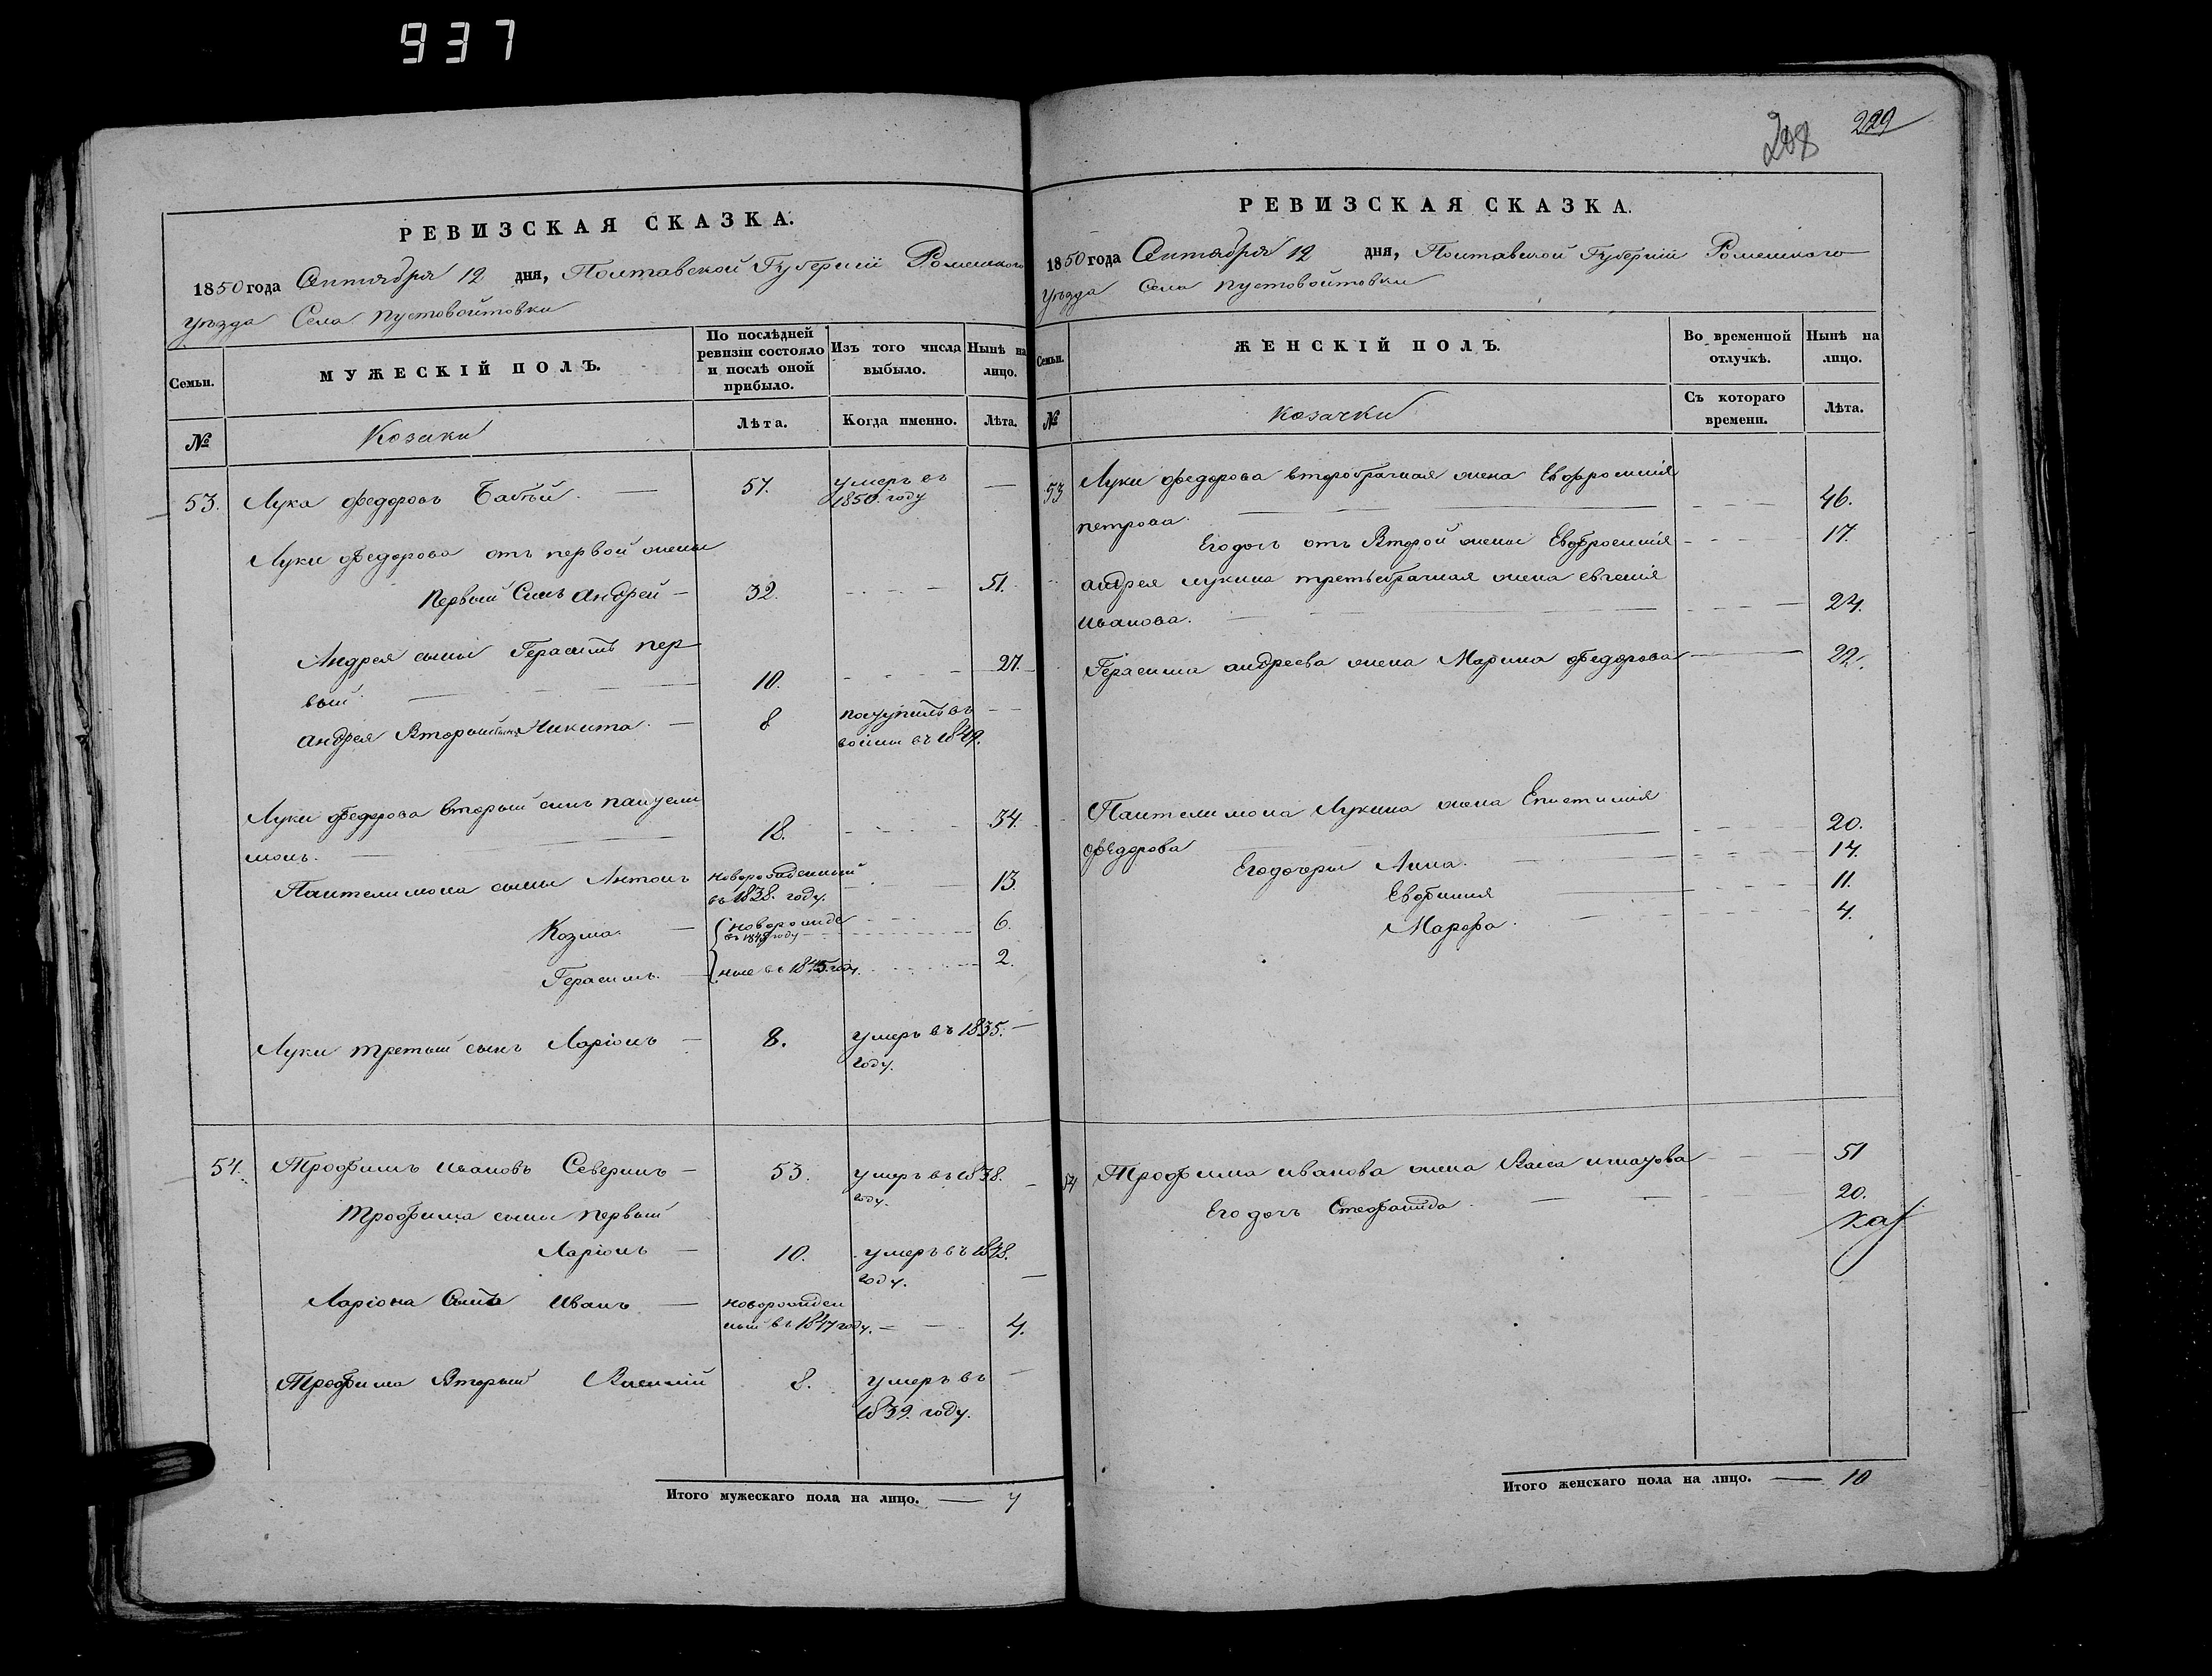 937
РЕВИЗСКАЯ СКАЗКА.
1850 года Сентября 12 дня, Полтавской Губерніи Роменского
уѣзда Села Пустовойтовки
Семьи.
МУЖЕСКІЙ ПОЛЪ.
По послѣдней
ревизіи состояло
и послѣ оной
прибыло.
Изъ того числа
выбыло.
Нынѣ на
лицо.
№
Козаки
Лѣта.
Когда именно.
Лѣта.
53. Лука Федоровъ Бабъй. — 57. умеръ въ —
1850. году
Луки Федорова отъ первой жены
Первый Сынъ Андрей — 32. 51.
Андрея сыны Герасимъ пер
вый. 10. 27.
Андрея Вторый сынъ Никита. — 8 поступилъ въ —
воины въ 1849.
Луки Федорова вторый сынъ Пантели
монъ. 18. 34.
Пантелимона сыны Антонъ новорожденный 13.
въ 1838. году.
Козма. — новорожде 6.
году
Герасимъ. — ные въ году. 2.
Луки третый сынъ Ларіонъ — 8. умеръ въ 1835. —
году.
54. Трофимъ Ивановъ Северинъ — 53. умеръ въ 1838. —
году.
Трофима сыны первый
Ларіонъ — 10. умеръ въ 1848.
году. —
Ларіона Сынъ Иванъ — новорожден
ный въ 1847 году. — 4.
Трофима Вторый Василій 8. умеръ въ —
1839. году.
Итого мужескаго пола на лицо. — 7
208 229
РЕВИЗСКАЯ СКАЗКА.
1850 года Сентября 12 дня, Полтавской Губерніи Роменского
уѣзда Села Пустовойтовки
Семьи.
ЖЕНСКІЙ ПОЛЪ.
Во временной
отлучкѣ.
Нынѣ на
лицо.
№
Козачки
Съ котораго
времени.
Лѣта.
53 Луки Федорова второбрачная жена Евфросинія
Петрова. 46.
Его дочь отъ Второй жены Евфросинія 17.
Андрея Лукина третьебрачная жена Евгенія
Иванова. 24.
Герасима Андреева жена Марина Федорова 22.
Пантелимона Лукина жена Епистимія
Федорова 20.
Его дочери Анна. 14.
Евфимія 11.
Марфа. 4.
54 Трофима Иванова жена Васа Игнатова 51
Его дочь Стефанида. 20.
Итого женскаго пола на лицо. — 10